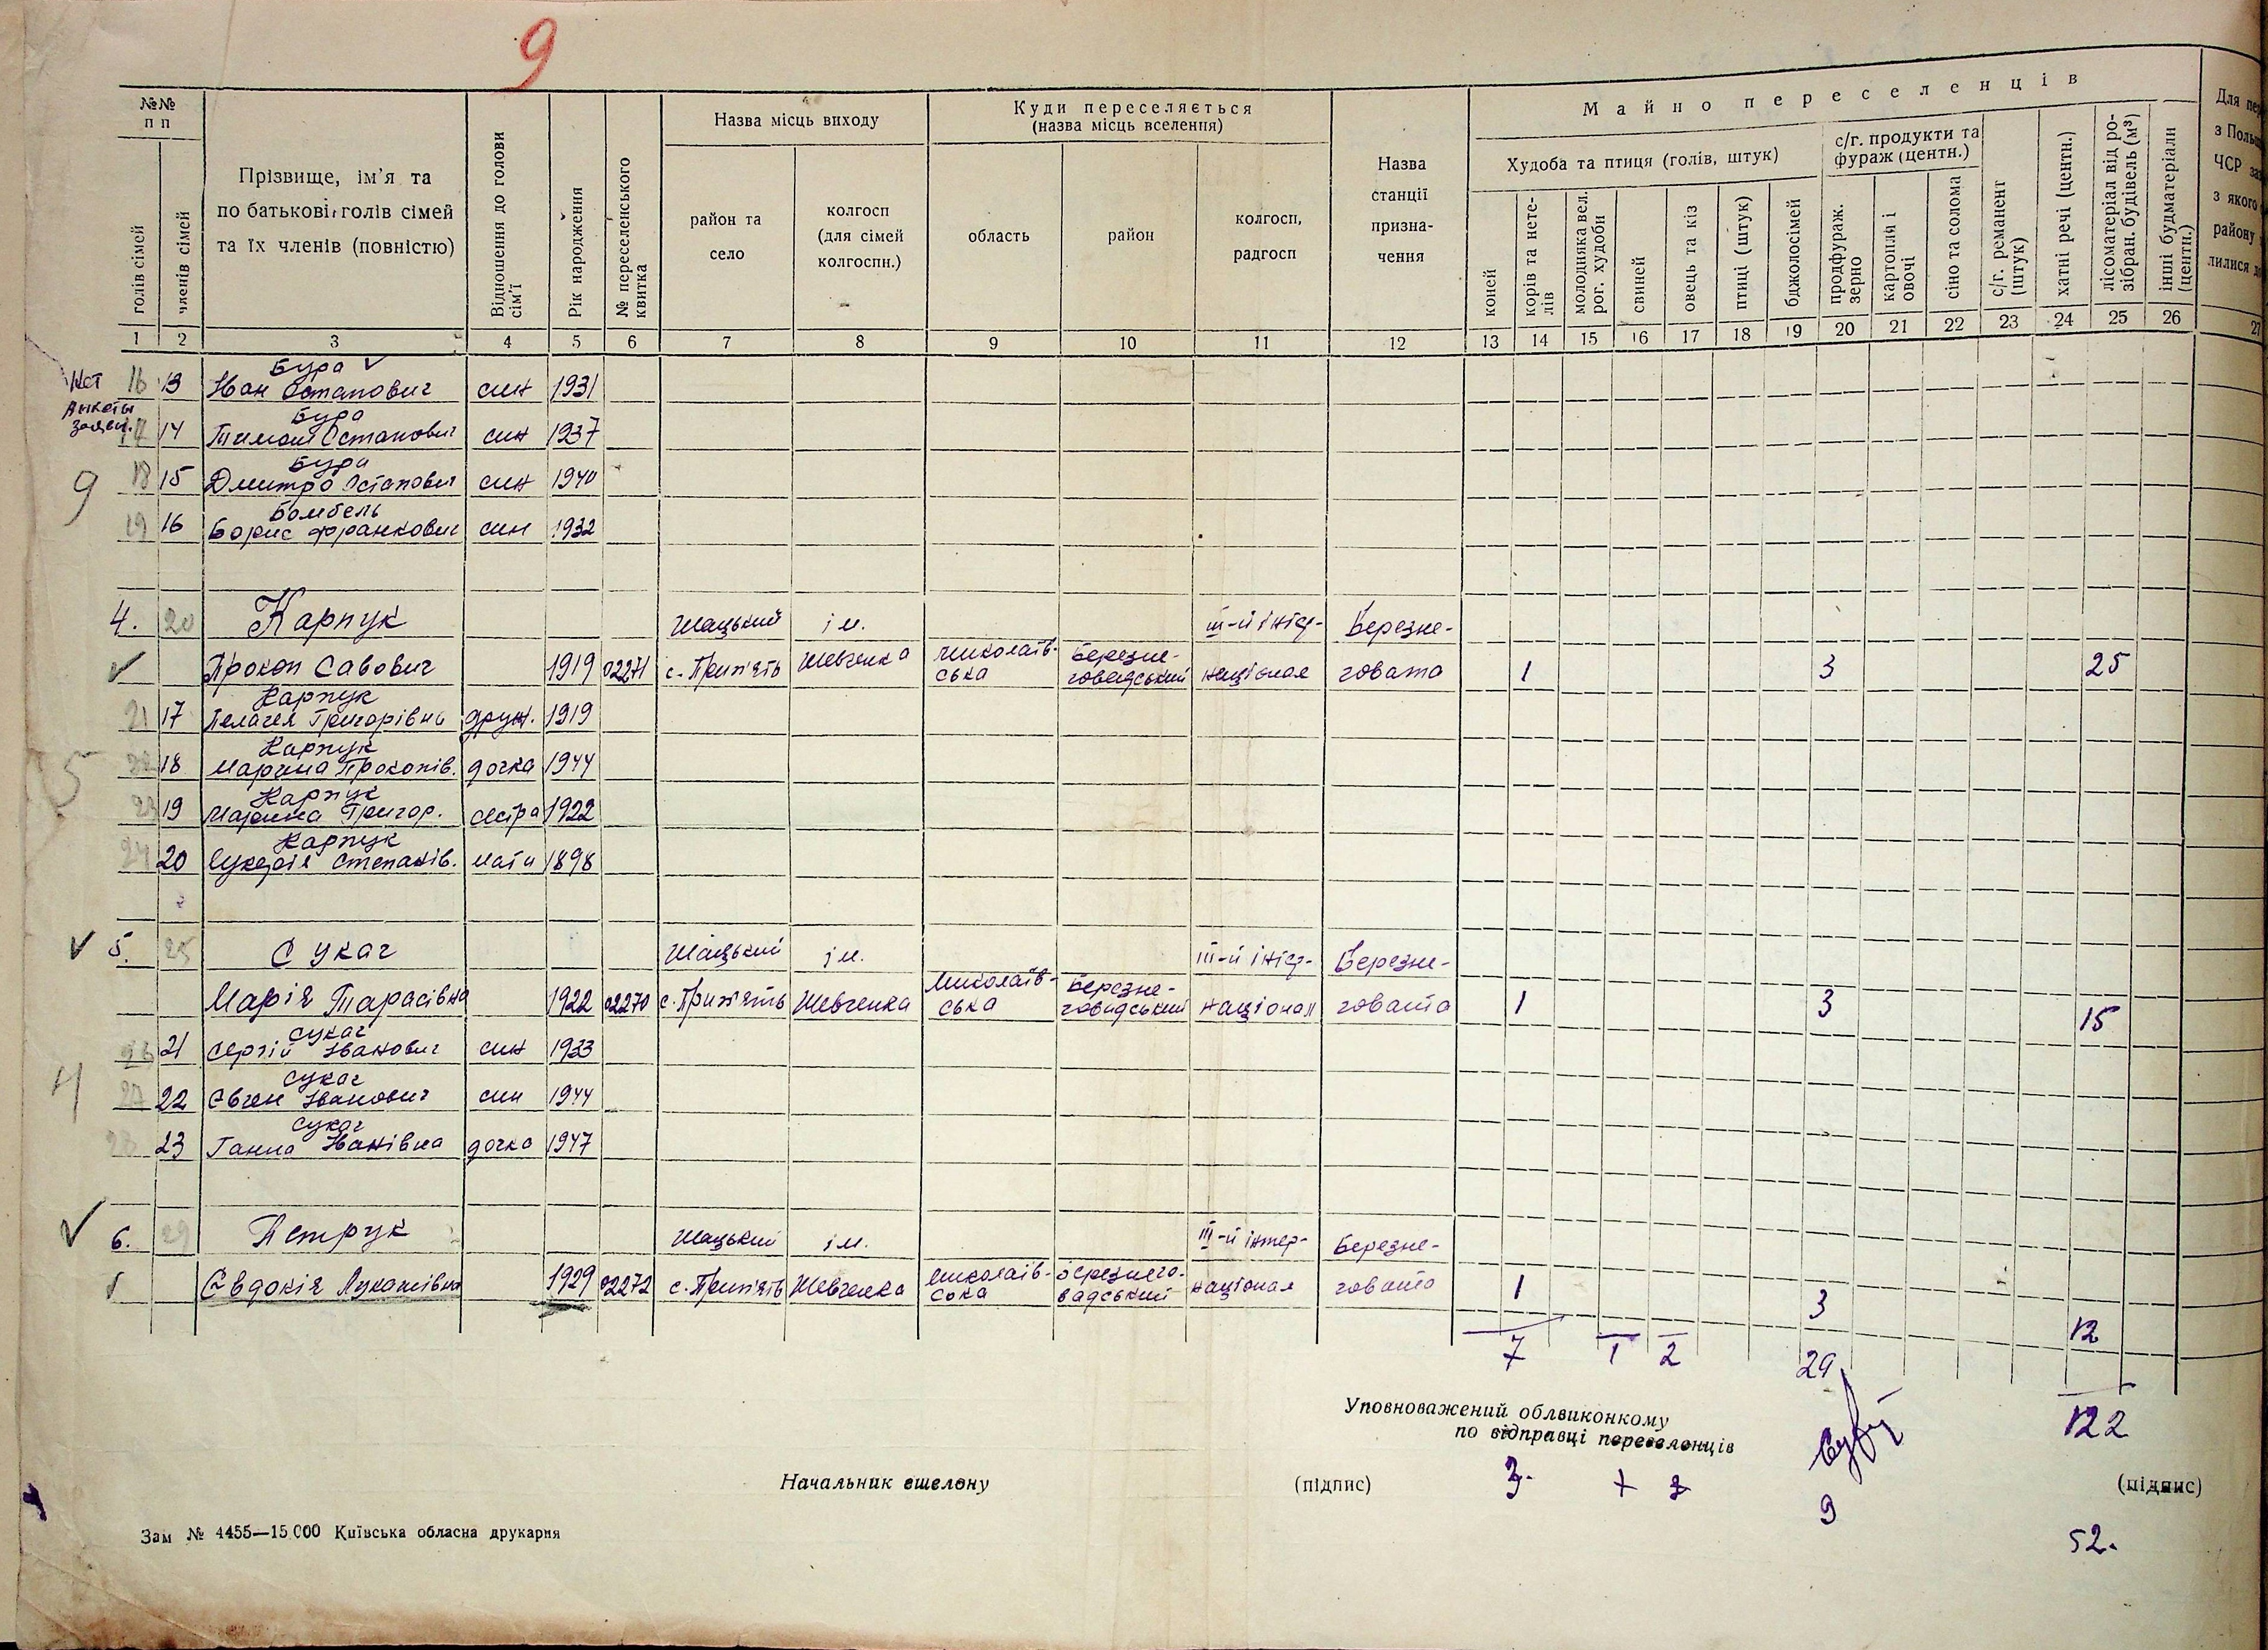 9
№№ п п
голів сімей
членів сімей
Прізвище, ім'я та
по батькові голів сімей
та їх членів (повністю)
Відношення до голови сім'ї
Рік народження
№ переселенського квитка
Назва місць виходу
район та
село
колгосп
(для сімей
колгоспн.)
Куди переселяється
(назва місць вселення)
область
район
колгосп,
радгосп
Назва
станції
призна-
чення
Майно переселенців
Худоба та птиця (голів, штук)
коней
корів та нете-
лів
молодняка вел.
рог. худоби
свиней
овець та кіз
птиці (штук)
бджолосімей
с/г. продукти та
фураж (центн.)
продфураж.
зерно
картопля і
овочі
сіно та солома
с/г. реманент
(штук)
хатні речі (центн.)
лісоматеріал від ро-
зібран. будівель (м³)
інші будматеріали
(центн.)
Для пер
з Поль
ЧСР за
з якого
району
лилися до
1 2 3 4 5 6 7 8 9 10 11 12 13 14 15 16 17 18 19 20 21 22 23 24 25 26 27
Нет
Анкеты
заявл.
Бура
16 13 Іван Остапович син 1931
Бура
17 14 Тимош Остапович син 1937
9
Бура
18 15 Дмитро Остапович син 1940
Бомбель
19 16 Борис Франкович син 1932
4. 20 Карпук Шацький ім. ІІІ-й інтер- Березне-
Прокоп Савович 1919 02271 с. Прип'ять Шевченка Миколаїв-
ська Березне-
говадський націонал говата 1 3 25
Карпук
21 17 Пелагея Григорівна друж. 1919
5
Карпук
22 18 Марина Прокопів. дочка 1944
Карпук
23 19 Марина Григор. сестра 1922
Карпук
24 20 Лукерія Степанів. мати 1898
5. 25 Сукач Шацький ім. ІІІ-й інтер- Березне-
Марія Тарасівна 1922 02270 с. Прип'ять Шевченка Миколаїв-
ська Березне-
говадський націонал говата 1 3 15
Сукач
26 21 Сергій Іванович син 1933
4
Сукач
27 22 Євген Іванович син 1944
Сукач
28 23 Ганна Іванівна дочка 1947
6. 29 Петрук Шацький ім. ІІІ-й інтер- Березне-
Євдокія Лукашівна 1929 02272 с. Прип'ять Шевченка Миколаїв-
ська Березнего-
вадський націонал говата 1 3 12
7 1 2 29 122
Уповноважений облвиконкому
по відправці переселенців
Начальник ешелону (підпис) (підпис)
3. 9
52.
Зам № 4455—15.000 Київська обласна друкарня